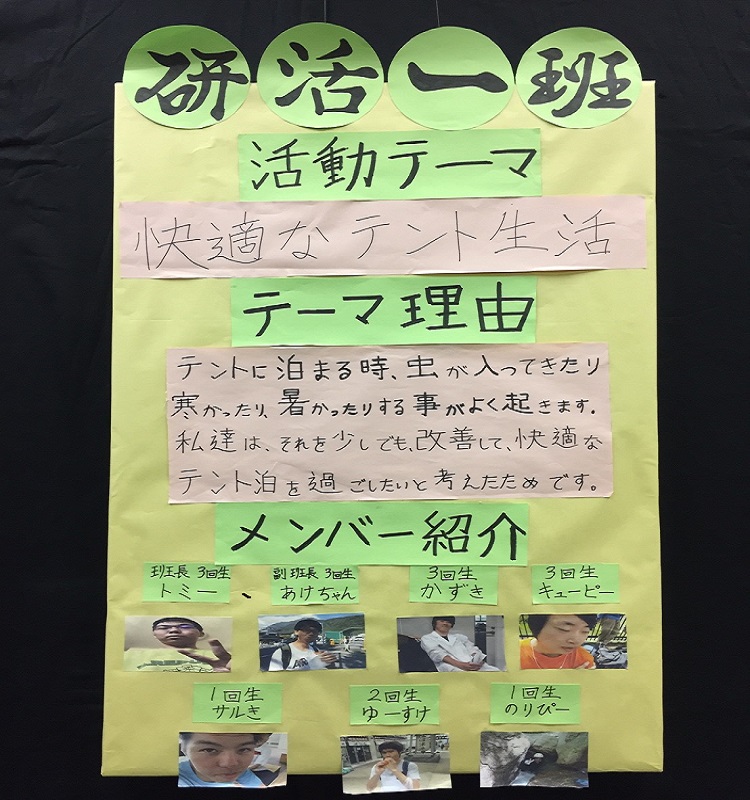 研活一班
活動テーマ
快適なテント生活
テーマ理由
テントに泊まる時、虫が入ってきたり
寒かったり、暑かったりする事がよく起きます。
私達は、それを少しでも、改善して、快適な
テント泊を過ごしたいと考えたためです。
メンバー紹介
班長 3回生
トミー
副班長 3回生
あけちゃん
3回生
かずき
3回生
キューピー
1回生
サルき
2回生
ゆーすけ
1回生
のりぴー